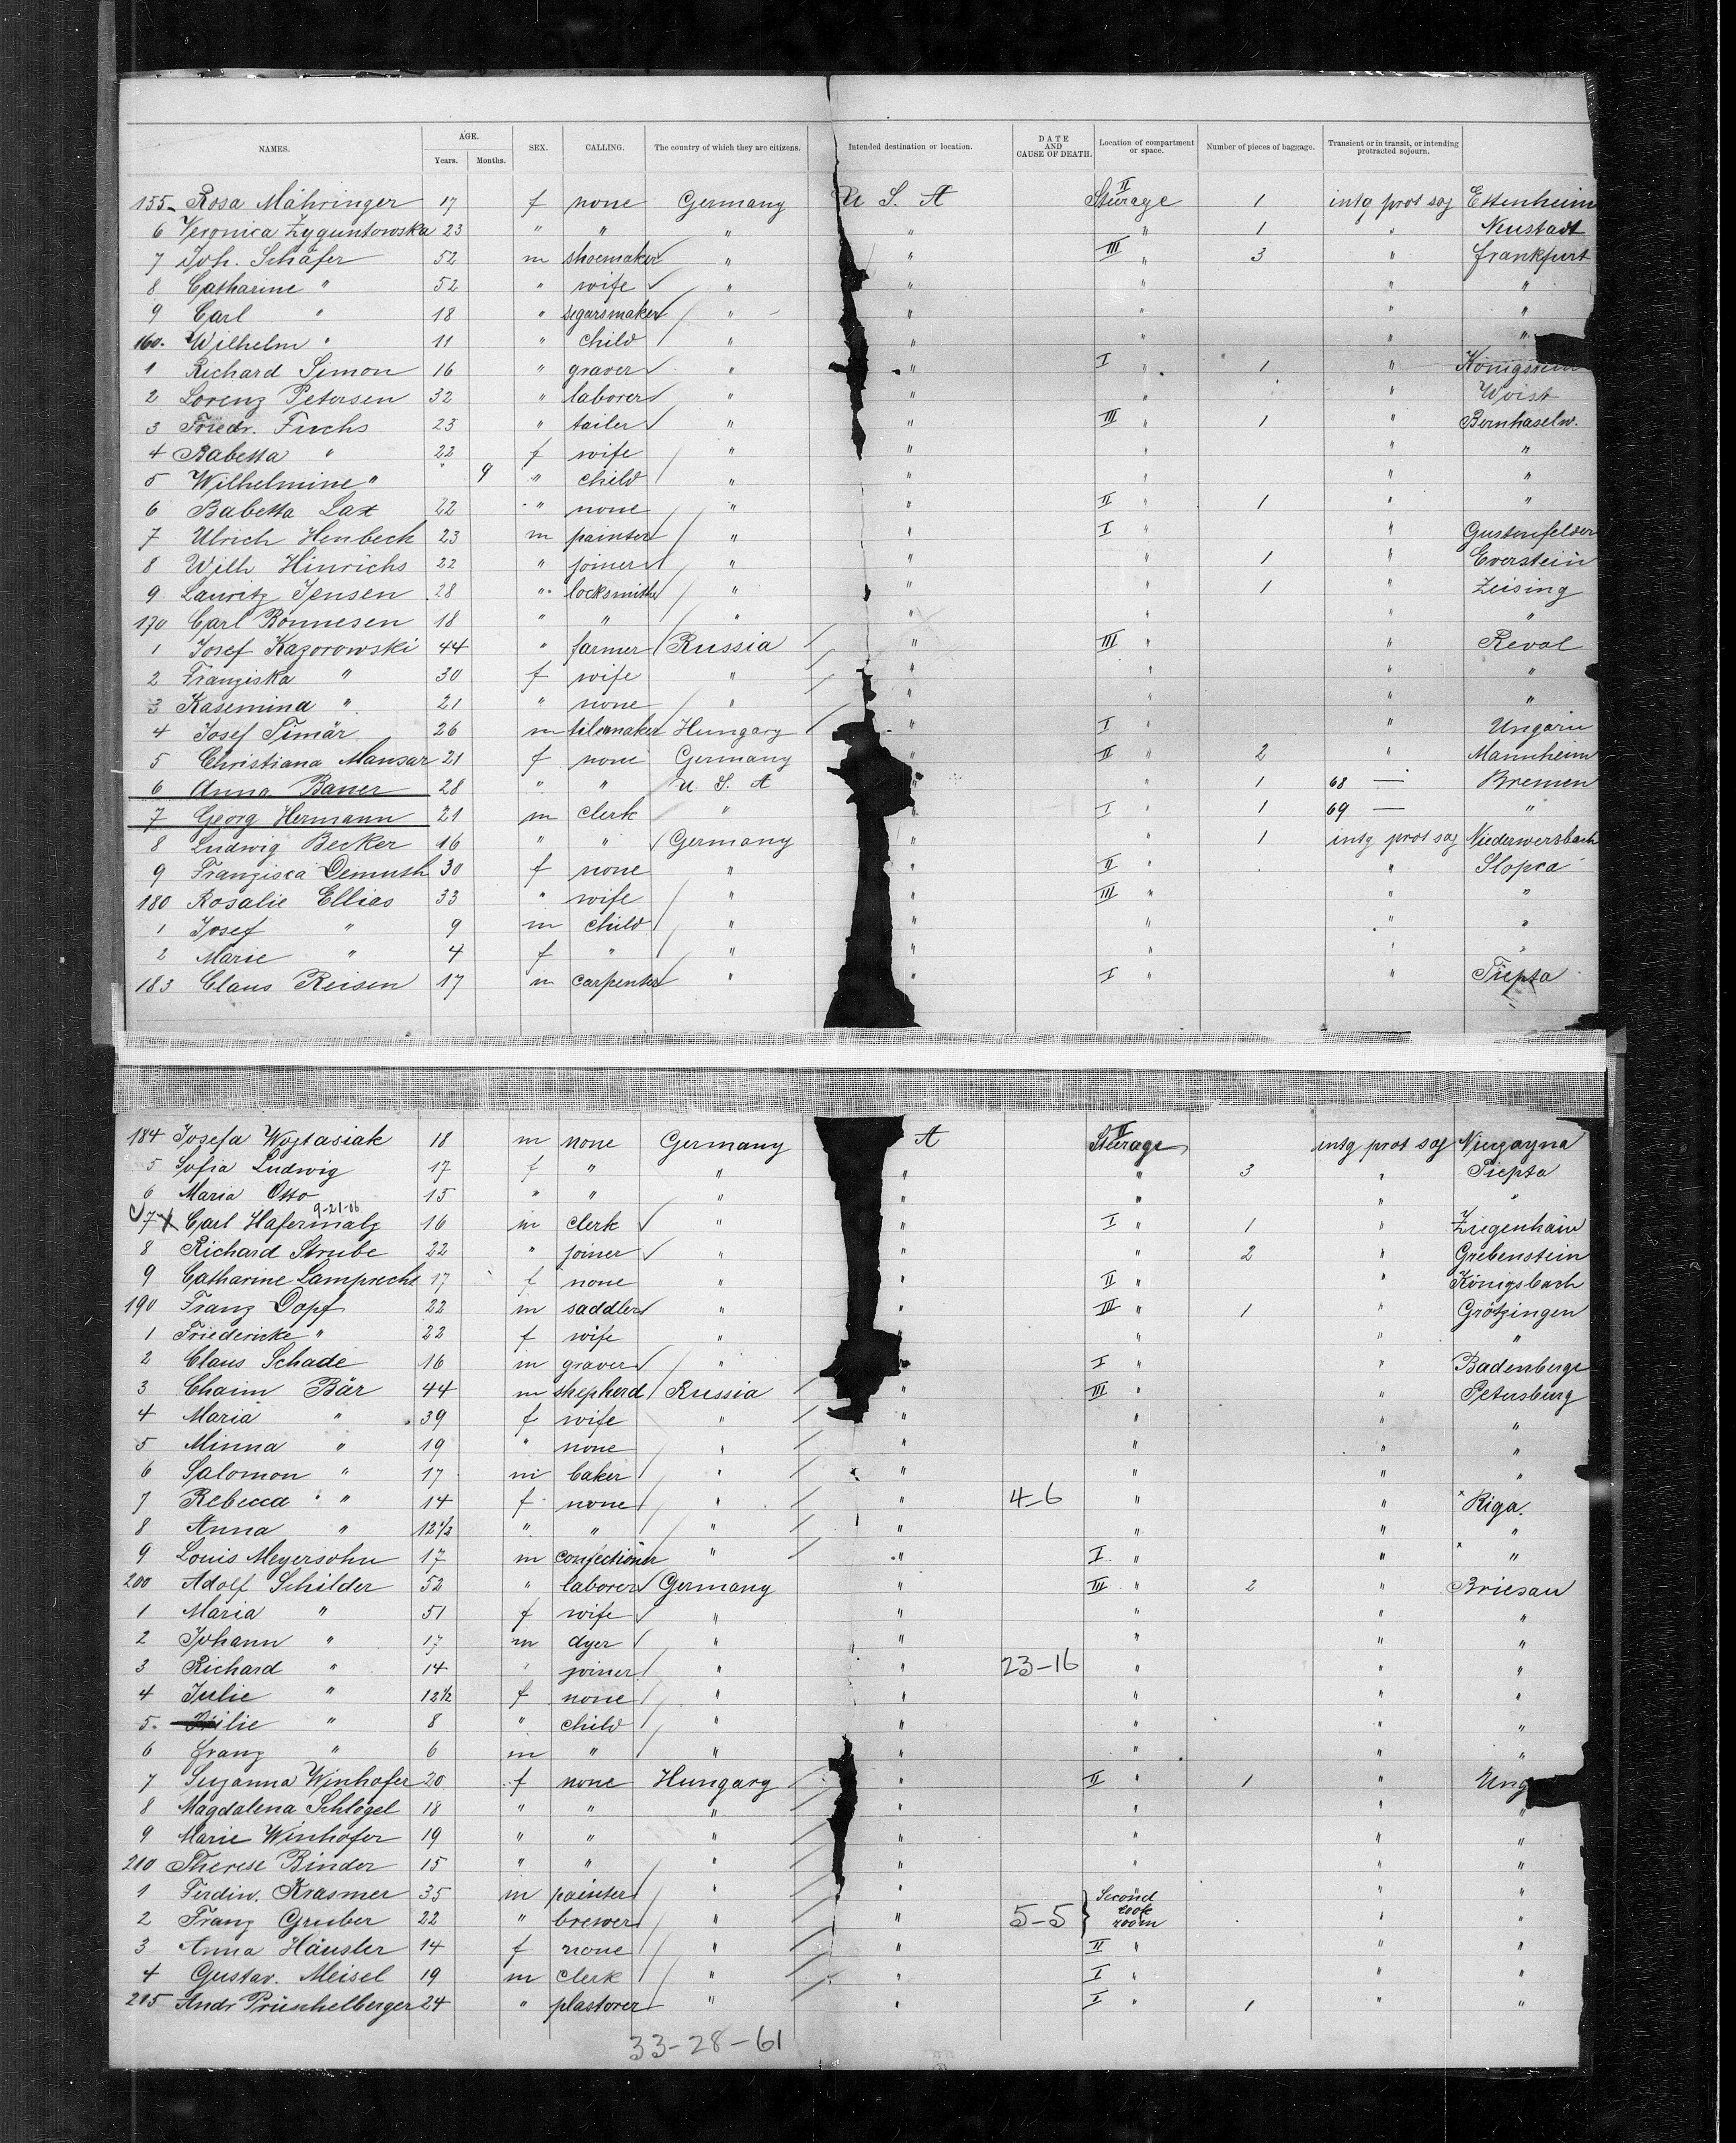 NAMES. AGE. Years. Months. SEX. CALLING. The country of which they are citizens. Intended destination or location. DATE AND CAUSE OF DEATH. Location of compartment or space. Number of pieces of baggage. Transient or in transit, or intending protracted sojourn.
155 Rosa Mähringer 17 f none Germany U S A II Steerage 1 intg prot soj Ettenheim
6 Veronica Zyguntowska 23 " " " " " 1 " Neustadt
7 Joh. Schäfer 52 m shoemaker " " III " 3 " Frankfurt
8 Catharine " 52 " wife " " " " "
9 Carl " 18 " segarsmaker " " " " "
160 Wilhelm " 11 " child " " " " "
1 Richard Simon 16 " graver " " I " 1 "
2 Lorenz Petersen 32 " laborer " " " " Woist
3 Friedr. Fuchs 23 " tailer " " III " 1 " Bernhaselw.
4 Babetta " 22 f wife " " " " "
5 Wilhelmine " " 9 " child " " " " "
6 Babetta Lax 22 " none " " II " 1 " "
7 Ulrich Henbeck 23 m painter " " I " " Gustenfelder
8 Wilh Hinrichs 22 " joiner " " " 1 " Everstein
9 Lauritz Jensen 28 " locksmith " " " 1 " Zeising
170 Carl Bonnesen 18 " " " " " " "
1 Josef Kazorowski 44 " farmer Russia " III " " Reval
2 Franziska " 30 f wife " " " " "
3 Kasemina " 21 " none " " " " "
4 Josef Timär 26 m tilemaker Hungary " I " " Ungarn
5 Christiana Mansar 21 f none Germany " II " 2 " Mannheim
6 Anna Bauer 28 " " U. S. A " " 1 68 — Bremen
7 Georg Hermann 21 m clerk " " I " 1 69 — "
8 Ludwig Becker 16 " " Germany " " 1 intg prot soj Niederwersbach
9 Franzisca Demuth 30 f none " " II " " Slopca
180 Rosalie Ellias 33 " wife " " III " " "
1 Josef " 9 m child " " " " "
2 Marie " 4 f " " " " " "
183 Claus Reisen 17 m carpenter " " I " " Tiepta
184 Josefa Wojtasiak 18 m none Germany A II Steerage intg prot soj Niezayna
5 Sofia Ludwig 17 f " " " " 3 " Piepta
6 Maria Otto 15 " " " " " " "
9-21-06
7 x Carl Hafermalz 16 m clerk " " I " 1 " Ziegenhain
8 Richard Strube 22 " joiner " " " 2 " Grebenstein
9 Catharine Lamprecht 17 f none " " II " " Königsbach
190 Franz Dopf 22 m saddler " " III " 1 " Grötzingen
1 Friedericke " 22 f wife " " " " "
2 Claus Schade 16 m graver " " I " " Badenberge
3 Chaim Bär 44 m shepherd Russia " III " " Petersburg
4 Maria " 39 f wife " " " " "
5 Minna " 19 " none " " " " "
6 Salomon " 17 m baker " " " " "
7 Rebecca " 14 f none " " 4-6 " " x Riga.
8 Anna " 12 1/2 " " " " " " "
9 Louis Meyersohn 17 m confectioner " " I " " x "
200 Adolf Schilder 52 " laborer Germany " III " 2 " Briesau
1 Maria " 51 f wife " " " " "
2 Johann " 17 m dyer " " " " "
3 Richard " 14 " joiner " " 23-16 " " "
4 Julie " 12 1/2 f none " " " " "
5 ilie " 8 " child " " " " "
6 Franz " 6 m " " " " " "
7 Suzanna Winhofer 20 f none Hungary " II " 1 " Ung
8 Magdalena Schlögel 18 " " " " " " "
9 Marie Winhofer 19 " " " " " " "
210 Therese Binder 15 " " " " " " "
1 Ferdin. Krasmer 35 m painter " " Second " "
2 Franz Gruber 22 " brewer " " 5-5 } cook room " "
3 Anna Häusler 14 f none " " II " " "
4 Gustav. Meisel 19 m clerk " " I " " "
215 Andr Prüschelberger 24 " plastorer " " I " 1 " "
33-28-61